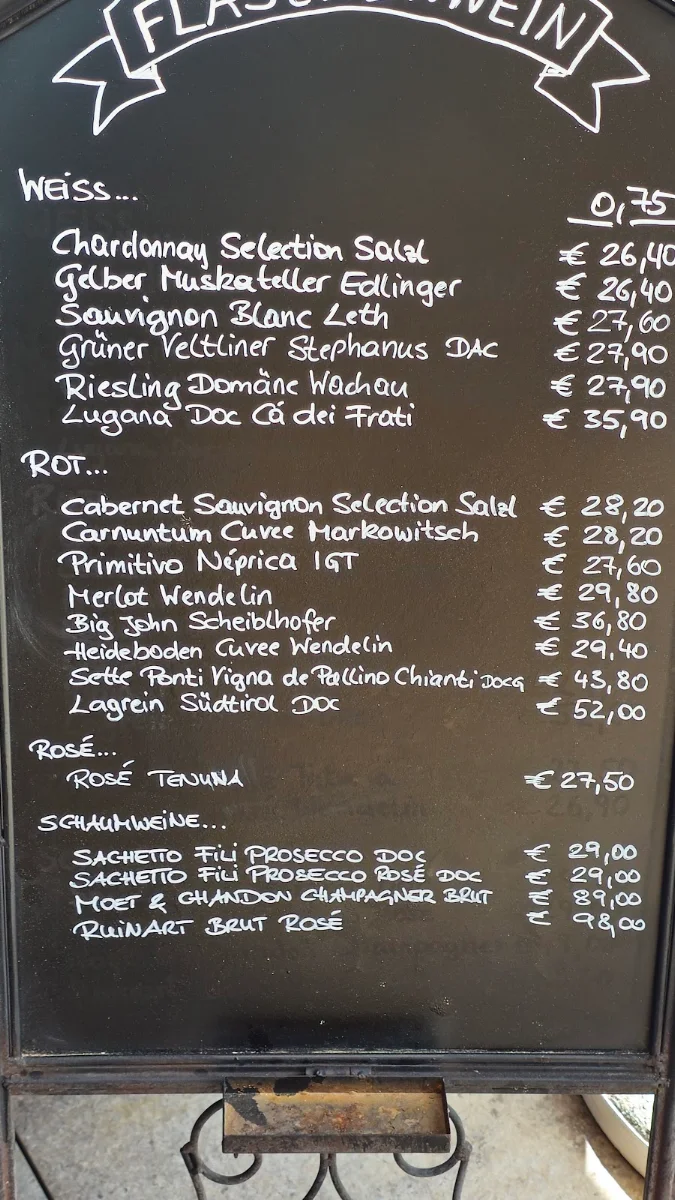 WEISS...
0,75
Chardonnay Selection Salzl € 26,40
Gelber Muskateller Edlinger € 26,40
Sauvignon Blanc Leth € 27,60
Grüner Veltliner Stephanus DAC € 27,90
Riesling Domäne Wachau € 27,90
Lugana Doc Cá dei Frati € 35,90
ROT...
Cabernet Sauvignon Selection Salzl € 28,20
Carnuntum Cuvee Markowitsch € 28,20
Primitivo Néprica IGT € 27,60
Merlot Wendelin € 29,80
Big John Scheiblhofer € 36,80
Heideboden Cuvee Wendelin € 29,40
Sette Ponti Vigna de Pallino Chianti DOCG € 43,80
Lagrein Südtirol DOC € 52,00
ROSÉ...
ROSÉ € 27,50
SCHAUMWEINE...
SACHETTO FILI PROSECCO DOC € 29,00
SACHETTO FILI PROSECCO ROSÉ DOC € 29,00
MOET & CHANDON CHAMPAGNER BRUT € 89,00
RUINART BRUT ROSÉ € 98,00